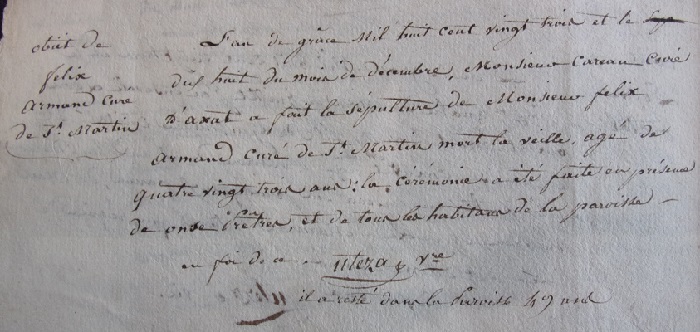 obiit de
felix
armand Curé
de St. Martin
L'an de grâce Mil huit cent vingt trois et le
dix huit du mois de décembre, Monsieur Careau Curé
D'axat a fait la sépulture de Monsieur felix
armand Curé de St. Martin mort la veille, agé de
quatre vingt trois ans; la cérémonie a été faite en présence
de onse Prêtres, et de tous les habitans de la paroisse
en foi de ce
il a resté dans la Paroisse 49 ans